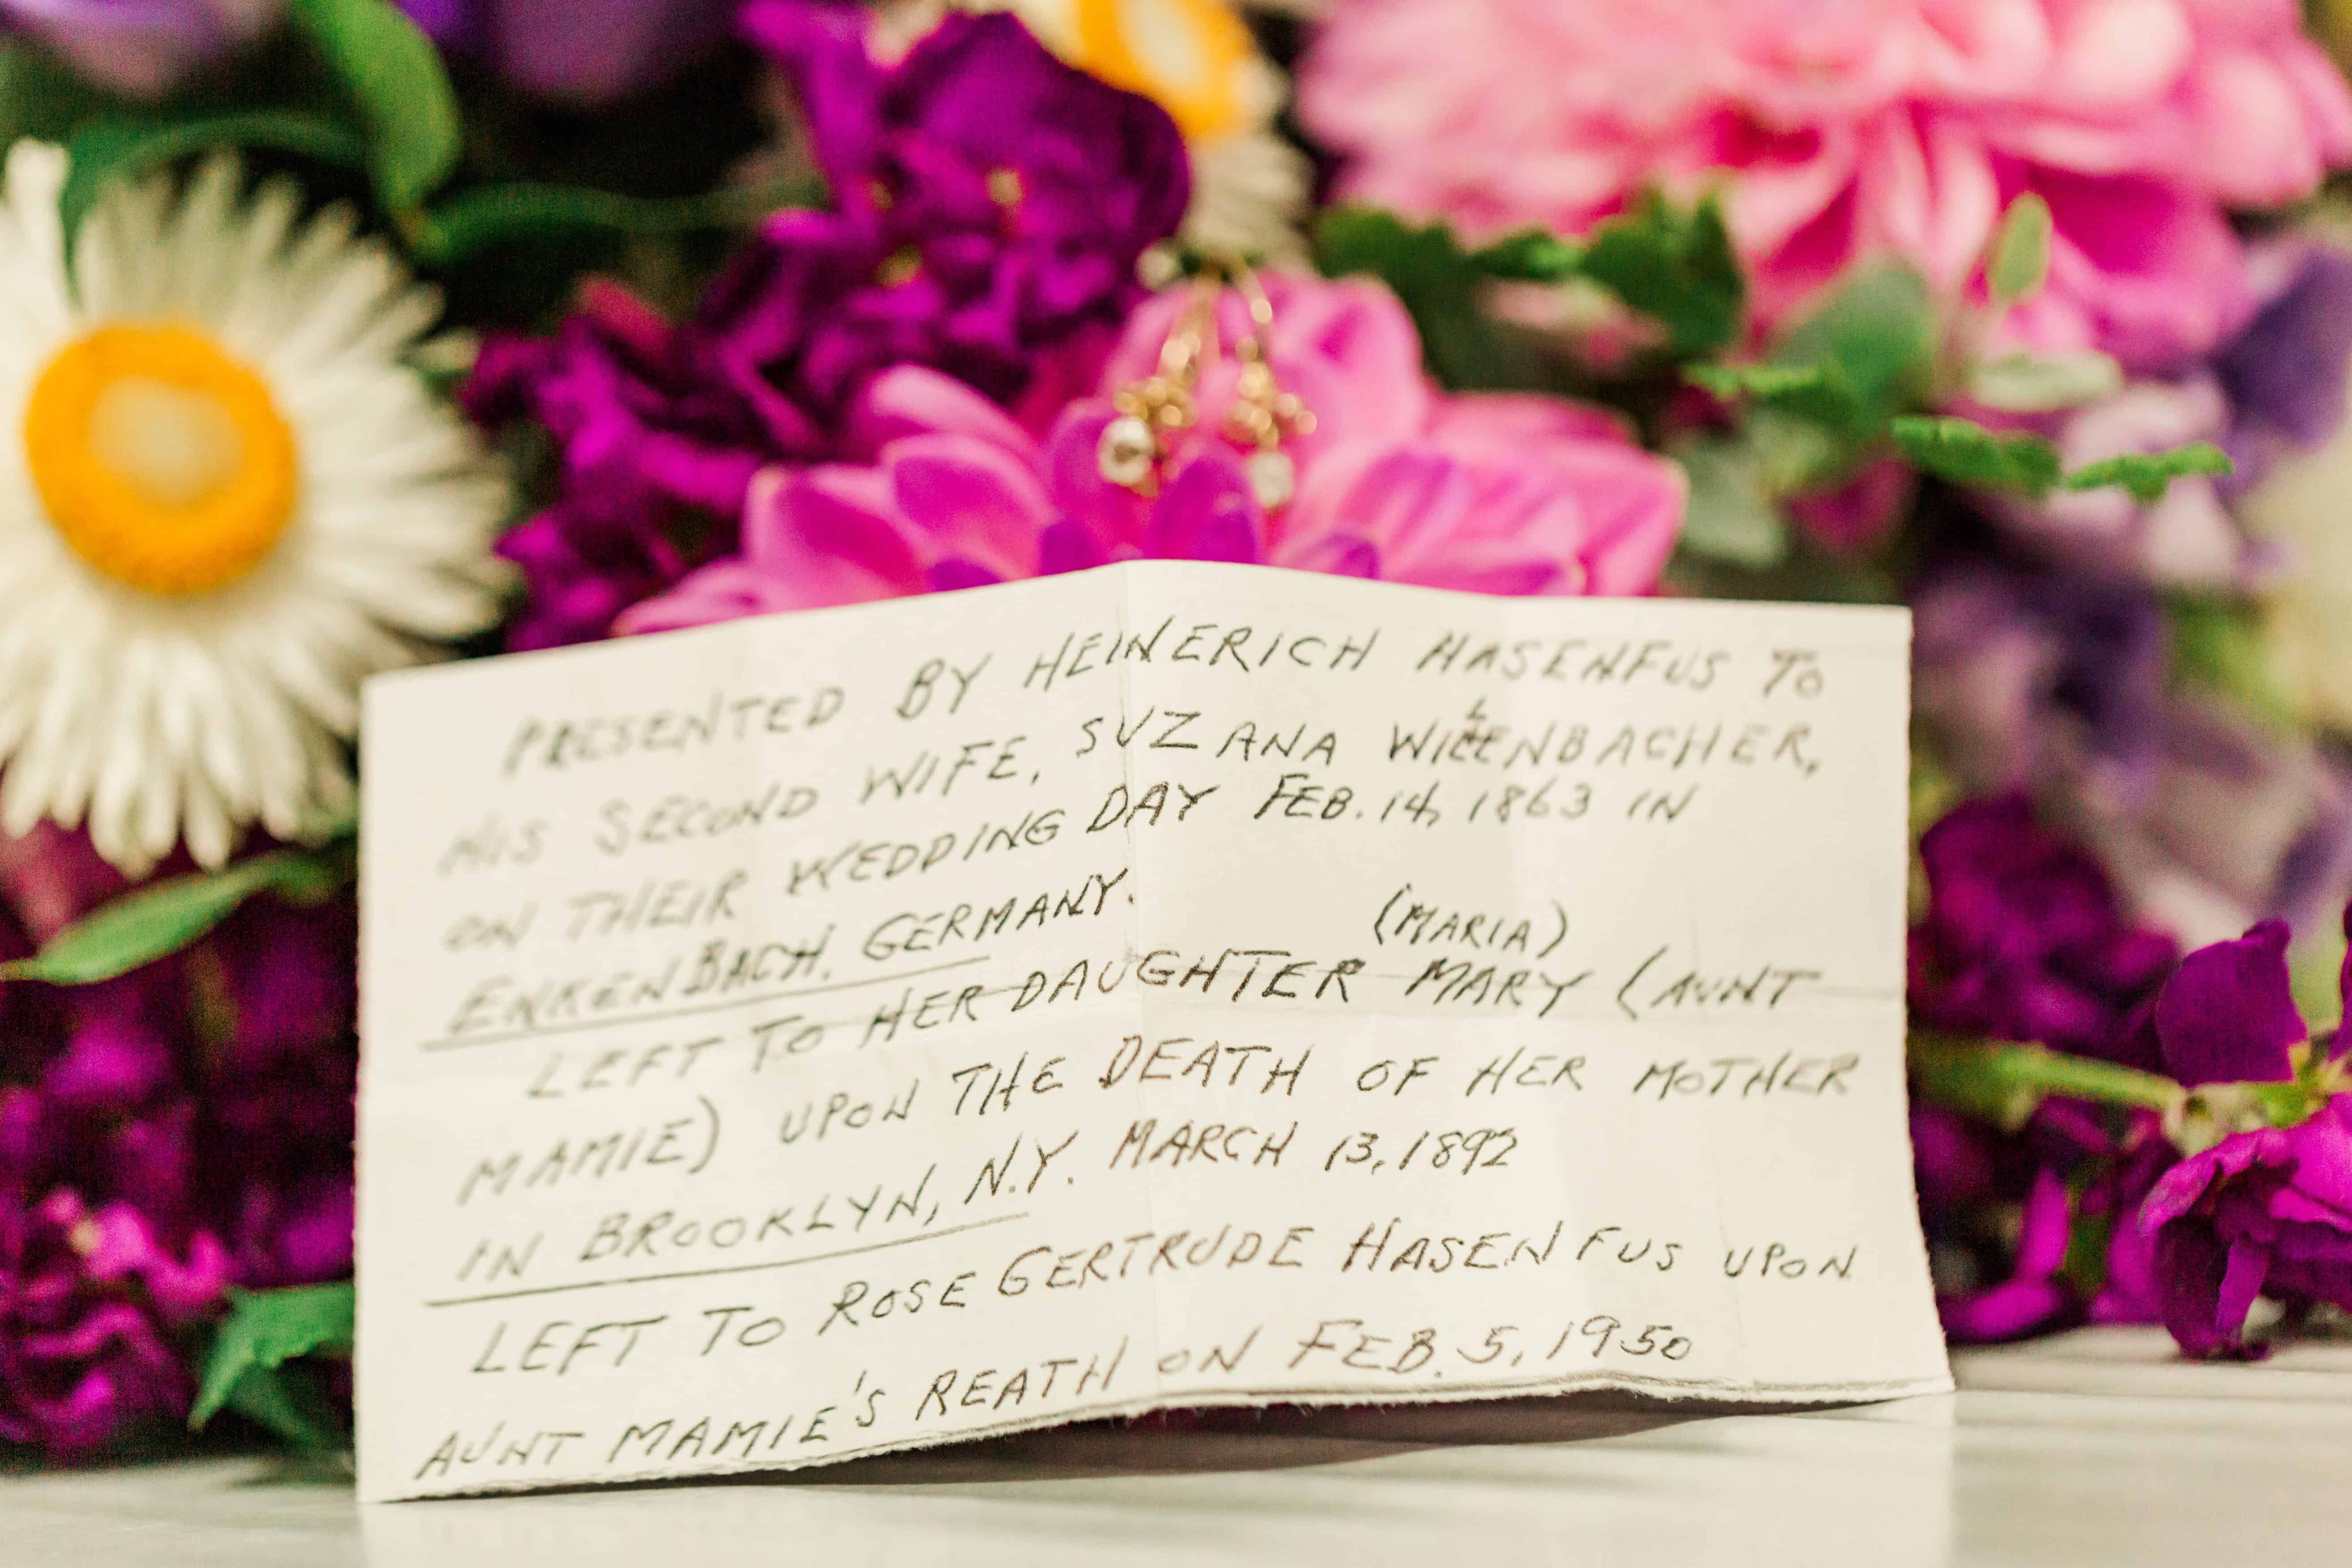 PRESENTED BY HEINERICH HASENFUS TO
HIS SECOND WIFE, SUZANA WILLENBACHER,
ON THEIR WEDDING DAY FEB. 14, 1863 IN
ENKENBACH, GERMANY.
(MARIA)
LEFT TO HER DAUGHTER MARY (AUNT
MAMIE) UPON THE DEATH OF HER MOTHER
IN BROOKLYN, N.Y. MARCH 13, 1892
LEFT TO ROSE GERTRUDE HASENFUS UPON
AUNT MAMIE'S REATH ON FEB. 5, 1950